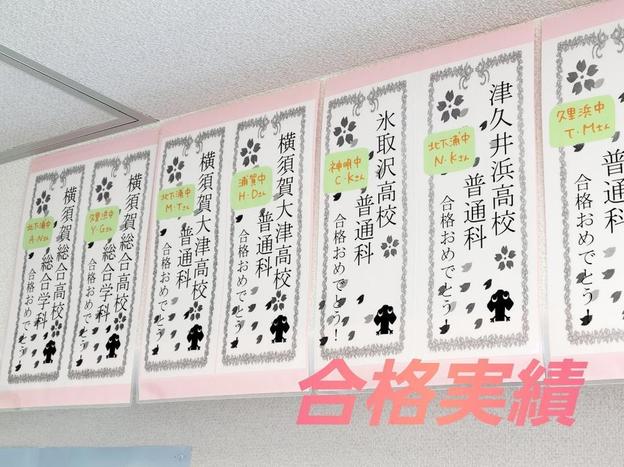 久里浜中
T・Mさん
津久井浜高校
普通科
合格おめでとう!
北下浦中
N・Kさん
氷取沢高校
普通科
合格おめでとう!
神明中
C・Kさん
横須賀大津高校
普通科
合格おめでとう!
浦賀中
H・Dさん
横須賀大津高校
普通科
合格おめでとう!
北下浦中
M・Tさん
横須賀総合高校
総合学科
合格おめでとう!
久里浜中
Y・Gさん
横須賀総合高校
総合学科
合格おめでとう!
北下浦中
A・Nさん
合格実績